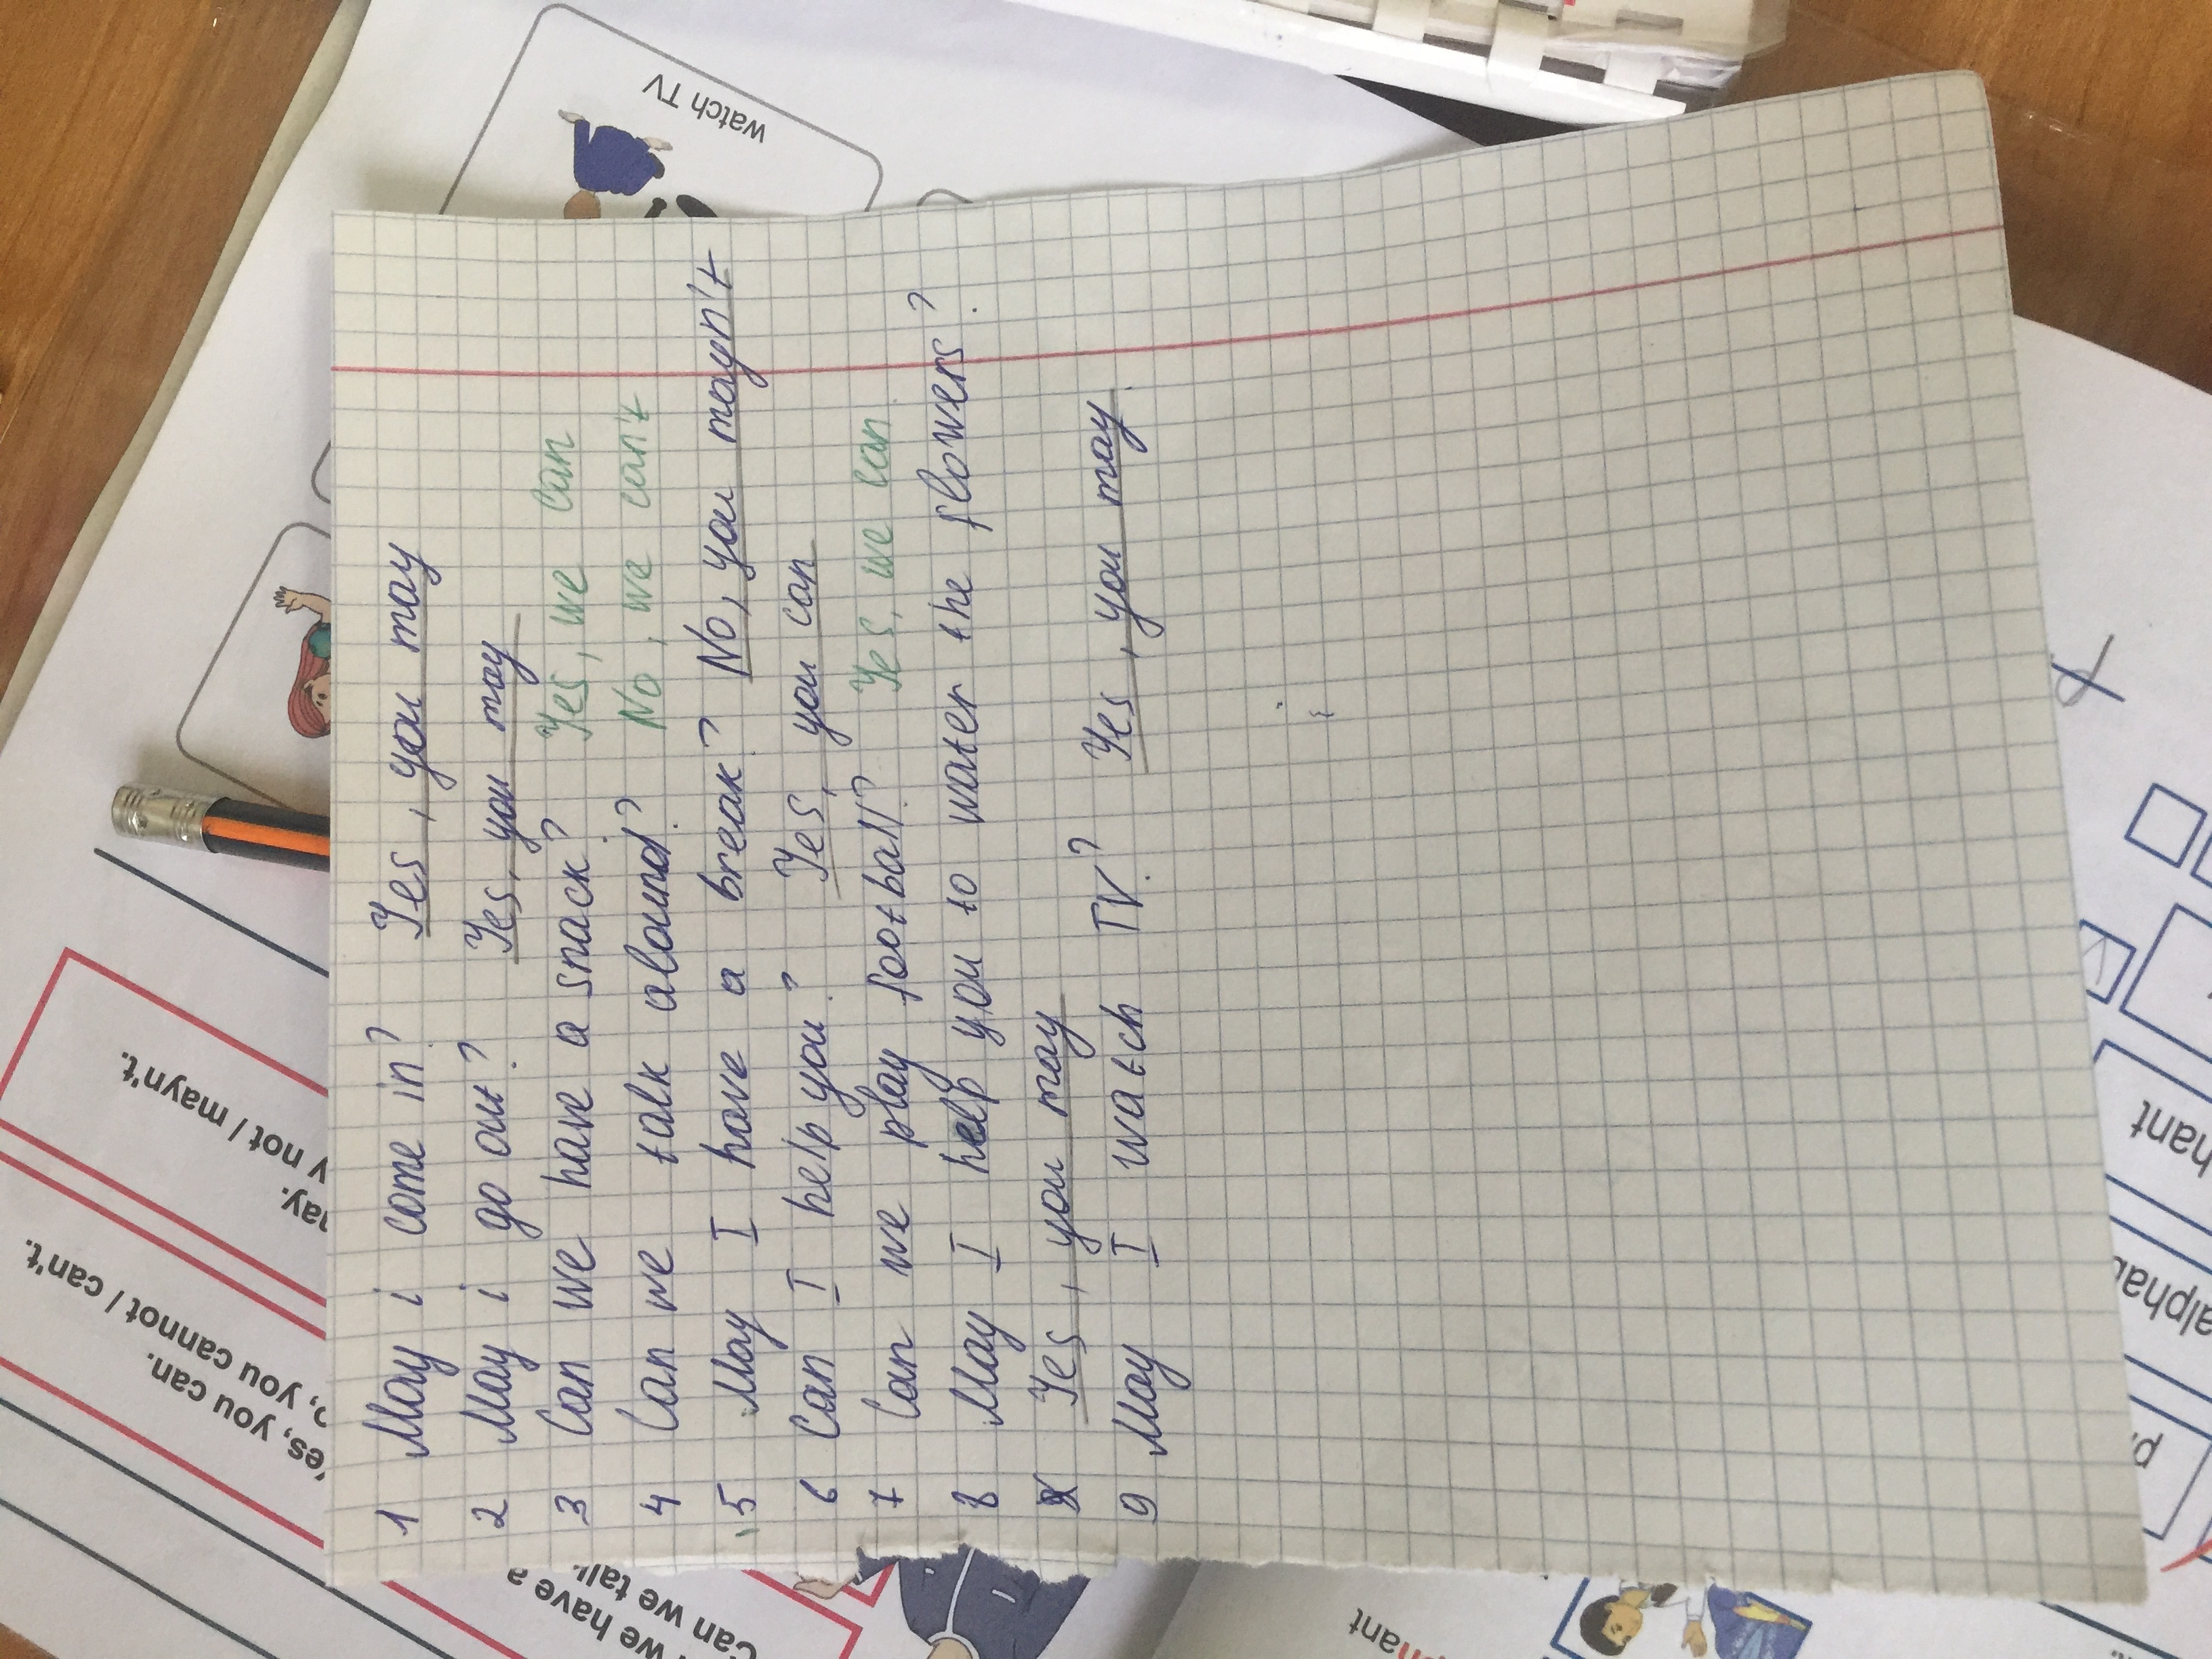 1 May i come in? Yes, you may
2 May i go out? Yes, you may
3 Can we have a snack? Yes, we can
4 Can we talk alound? No, we can't
5 May I have a break? No, you mayn't
6 Can I help you? Yes, you can
7 Can we play football? Yes, we can
8 May I help you to water the flowers?
Yes, you may
9 May I watch TV? Yes, you may
watch TV
not / mayn't.
you can.
you cannot / can't.
we have a
Can we